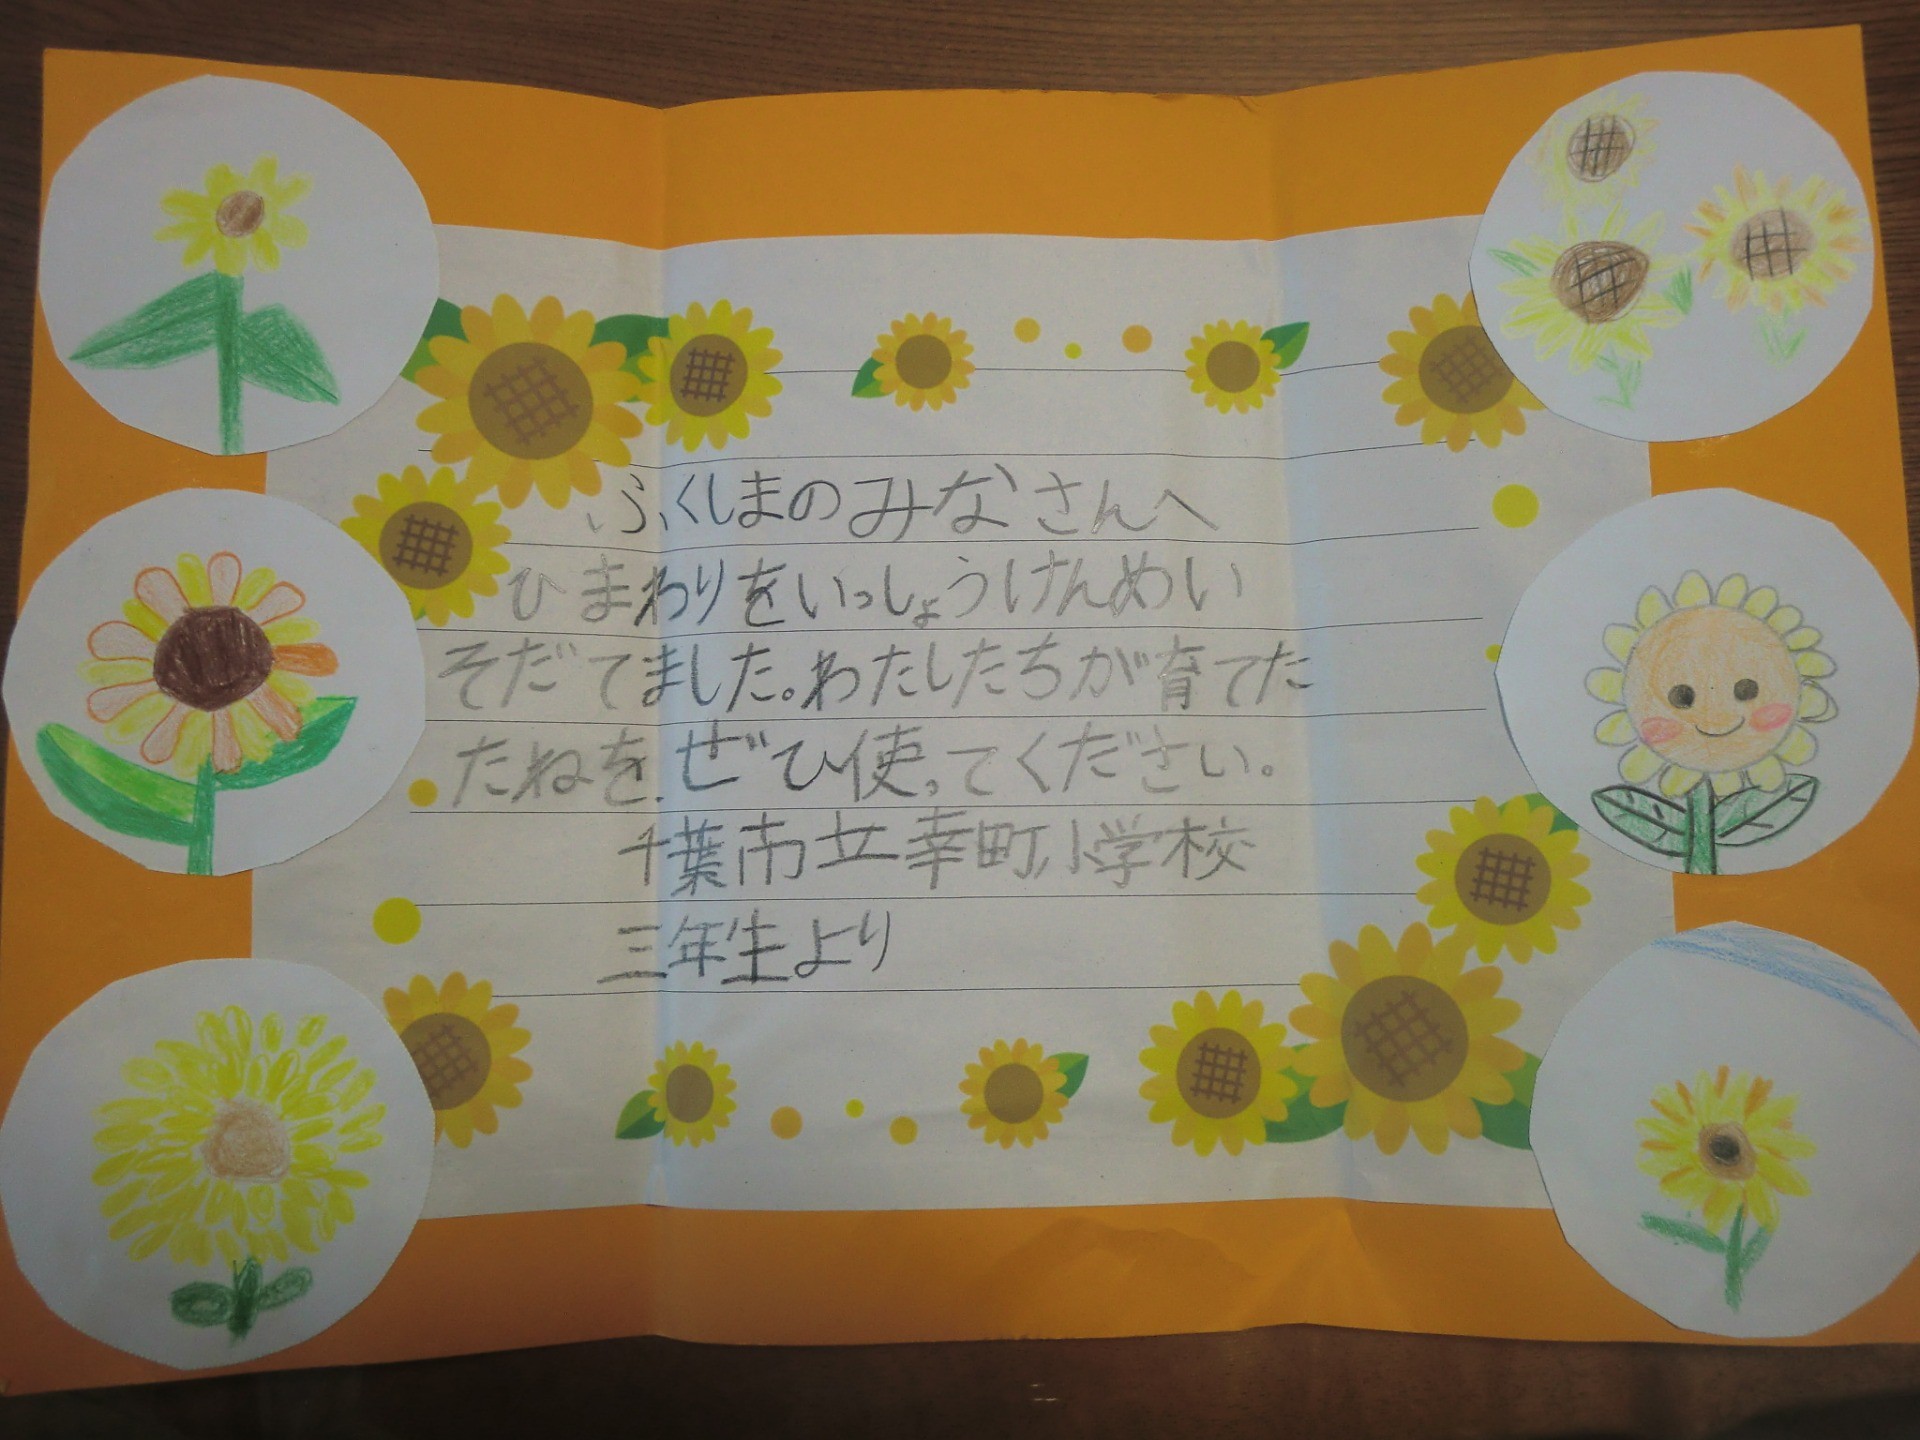 ふくしまのみなさんへ
ひまわりをいっしょうけんめい
そだてました。わたしたちが育てた
たねを、ぜひ使ってください。
千葉市立幸町小学校
三年生より